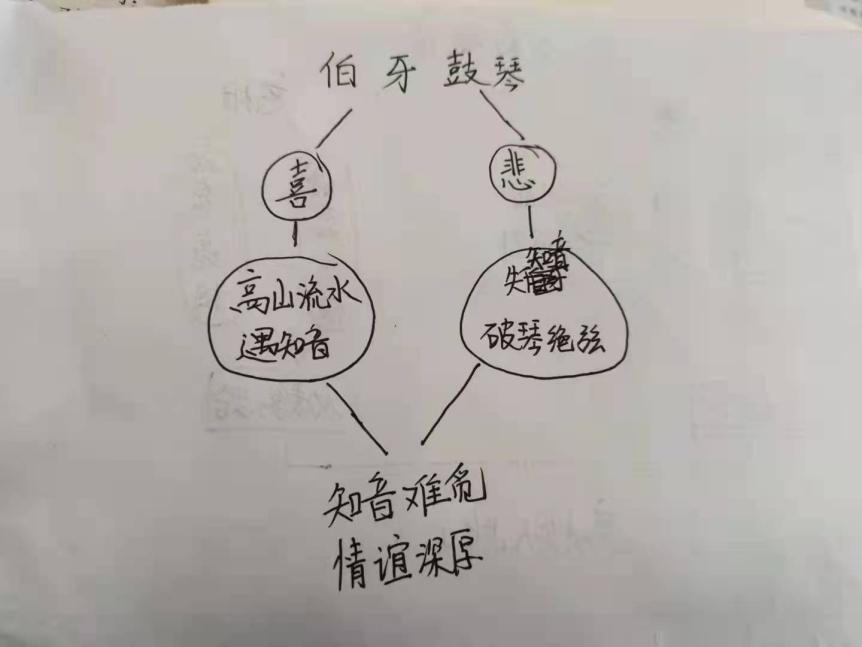 伯牙鼓琴
喜
悲
高山流水
遇知音
失知音
破琴绝弦
知音难觅
情谊深厚